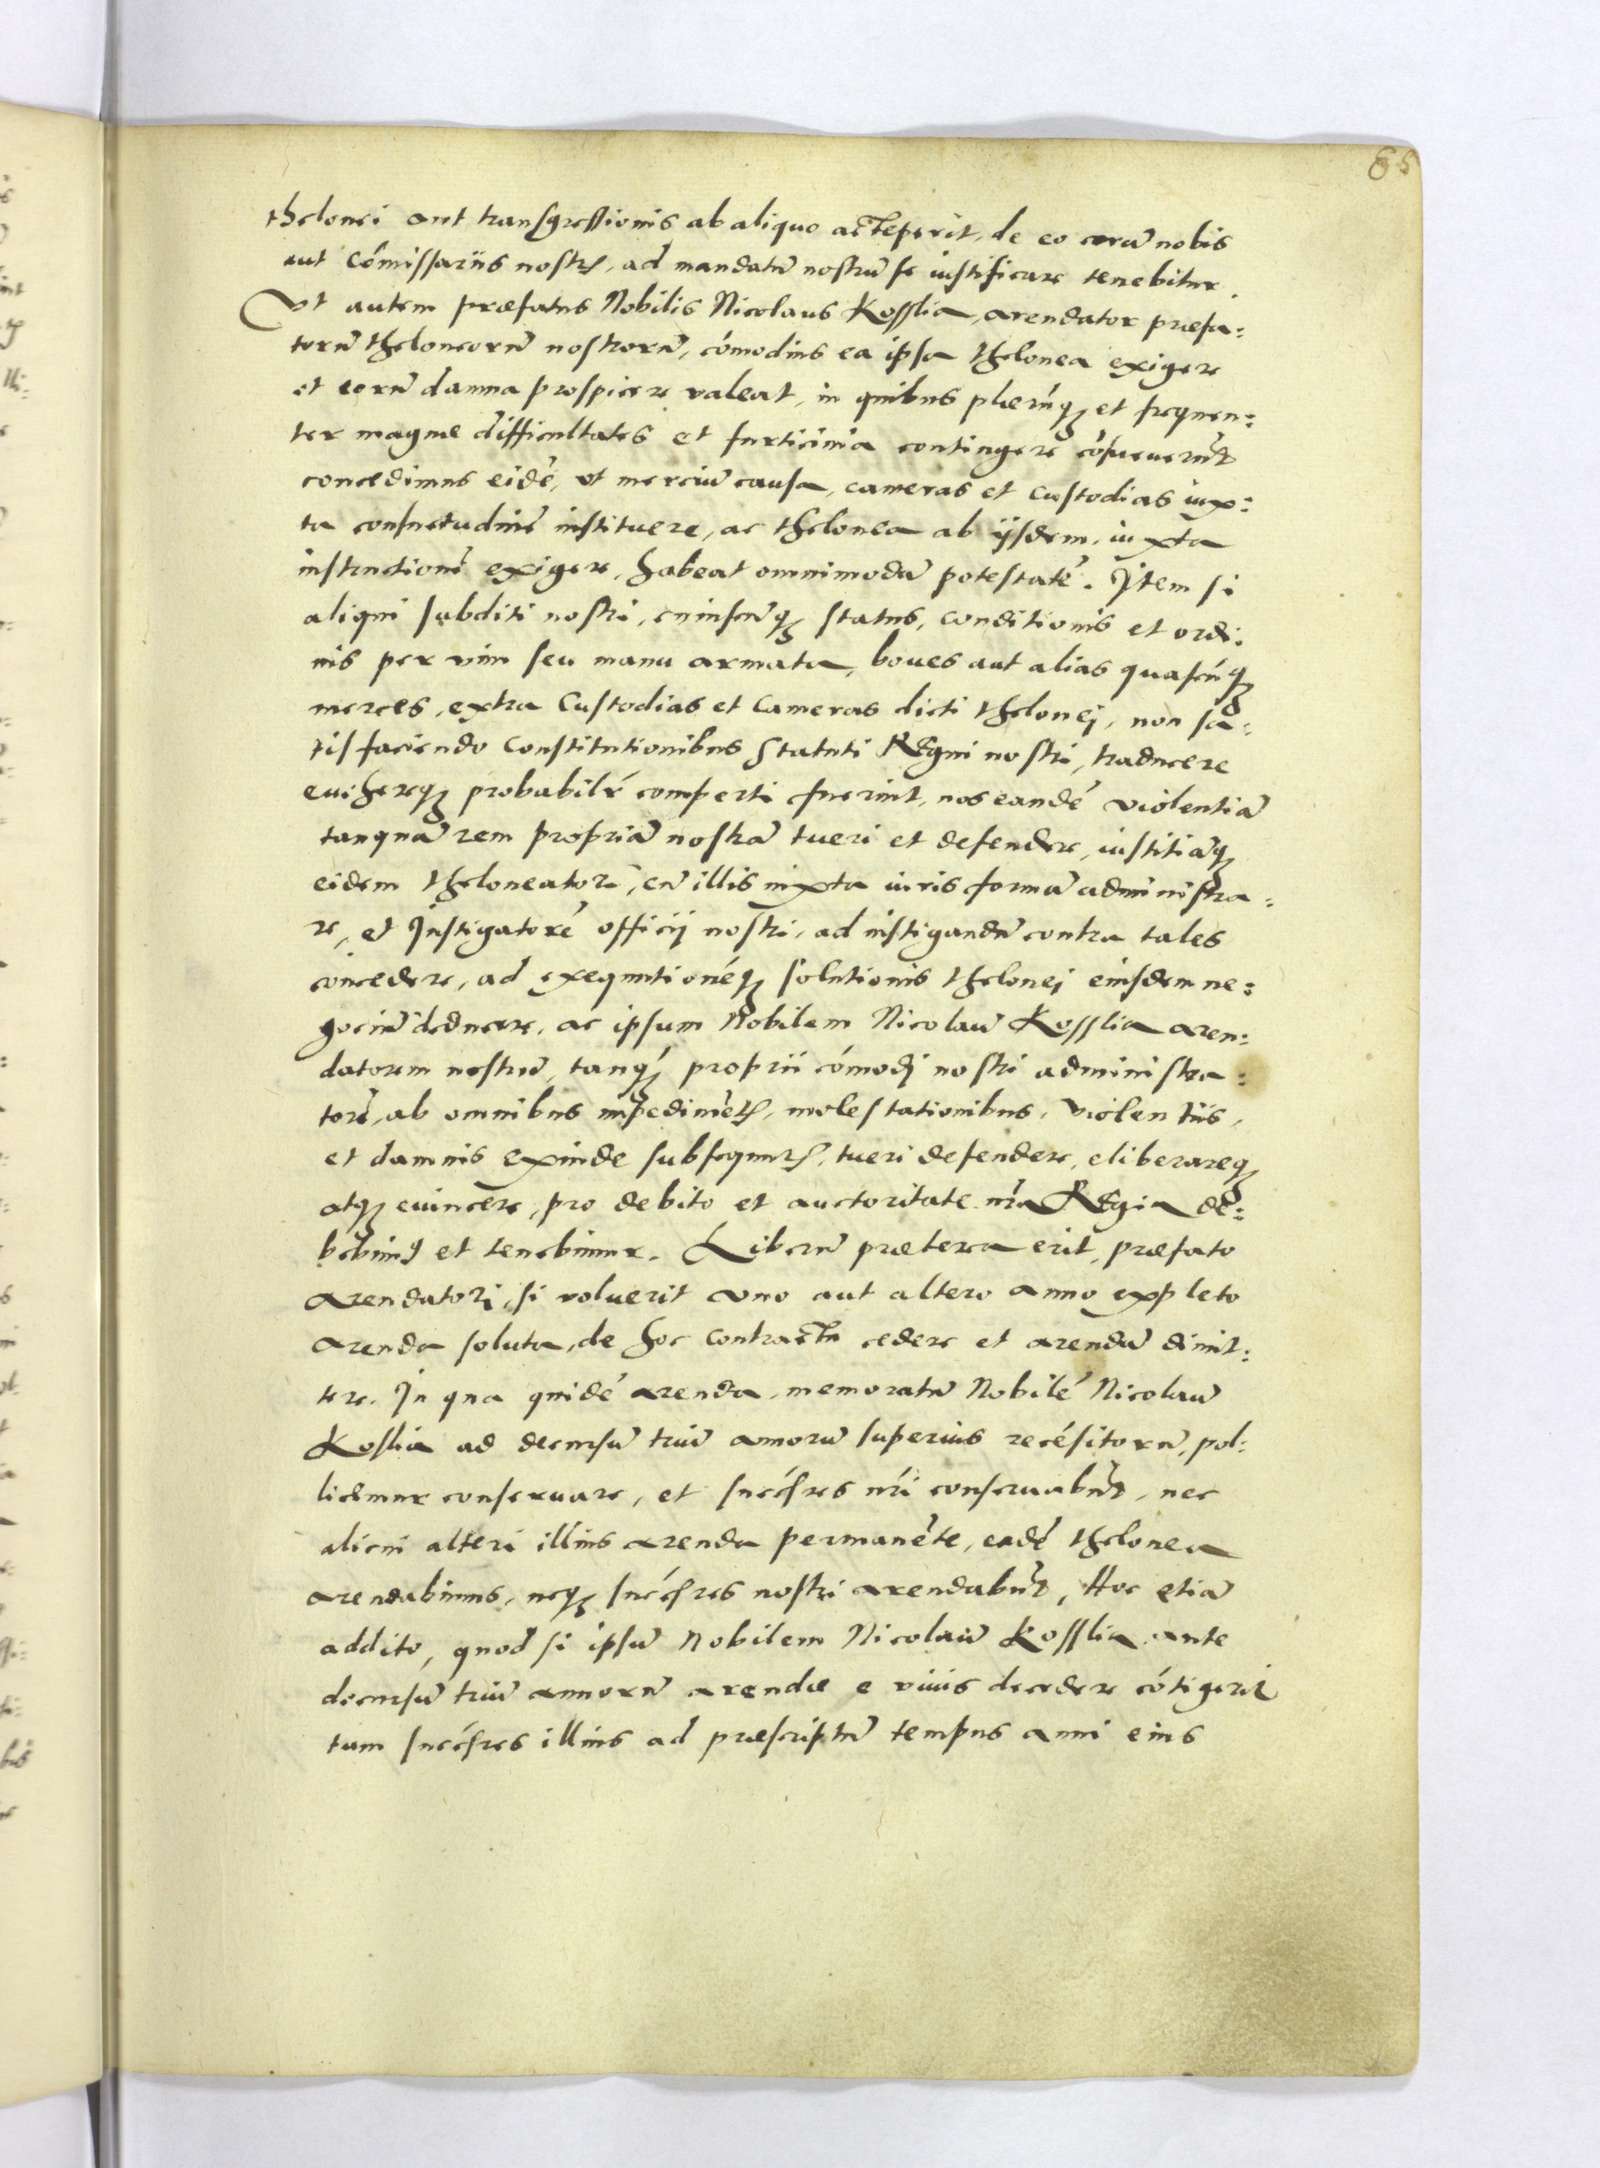 65
thelonei aut transgressionis ab aliquo acceperit, de eo corā nobis
aut cōmissariis nostris, ad mandatū nostrum se iustificare tenebitur.
Vt autem præfatus Nobilis Nicolaus Kosslia, arendator præfa:
torū theloneorū nostrorū, cōmodius ea ipsa thelonea exigere
et eorū damna prospicere valeat, in quibus plærūq; et frequen:
ter magnæ difficultates et furticinia contingere cōsueuerūt
concedimus eidē, vt mercium causa, cameras et custodias iux:
ta consuetudinē instituere, ac thelonea ab ijsdem, iuxta
instructionē exigere, habeat omnimodā potestatē. Item si
aliqui subditi nostri, cuiuscūq; status, conditionis et ordi:
nis per vim seu manu armata, boues aut alias quascūq;
merces, extra Custodias et Cameras dicti thelonej, non sa:
tisfaciendo Constitutionibus Statuti Regni nostri, traducere
euehereq; probabilr̄ comperti fuerint, nos eandē violentiā
tanquā rem propriā nostrā tueri et defendere, iustitiāq;
eidem theloneatori, cū illis iuxta iuris formā administra:
re, et Instigatorē officij nostri, ad instigandū contra tales
concedere, ad exequutionēq; solutionis thelonej eiusdem ne:
gocium deducere, ac ipsum Nobilem Nicolaū Kosslia aren:
datorem nostrū, tanq; proprii cōmodj nostri administra:
torē, ab omnibus impedimētis, molestationibus, violentiis,
et damnis exinde subsequuris, tueri defendere, eliberareq;
atq; euincere, pro debito et auctoritate nr̄a Regia de:
bebimus et tenebimur. Liberū præterea erit, præfato
arendatori, si voluerit vno aut altero anno expleto
arenda soluta, de hoc contractu cedere et arendā dimit:
tere. In qua quidē arenda, memoratū Nobilē Nicolaū
Koslia ad decursū triū annorū superius recēsitorū, pol:
licemur conseruare, et succēsres nr̄i conseruabūt, nec
alicui alteri illius arenda permanēte, eadē thelonea
arendabimus, neq; succēsres nostri arendabūt, Hoc etiā
addito, quod si ipsū Nobilem Nicolaū Kosslia ante
decursū triū annorū arendæ e viuis decedere cōtigerit
tum succēsres illius ad præscriptū tempus anni eius